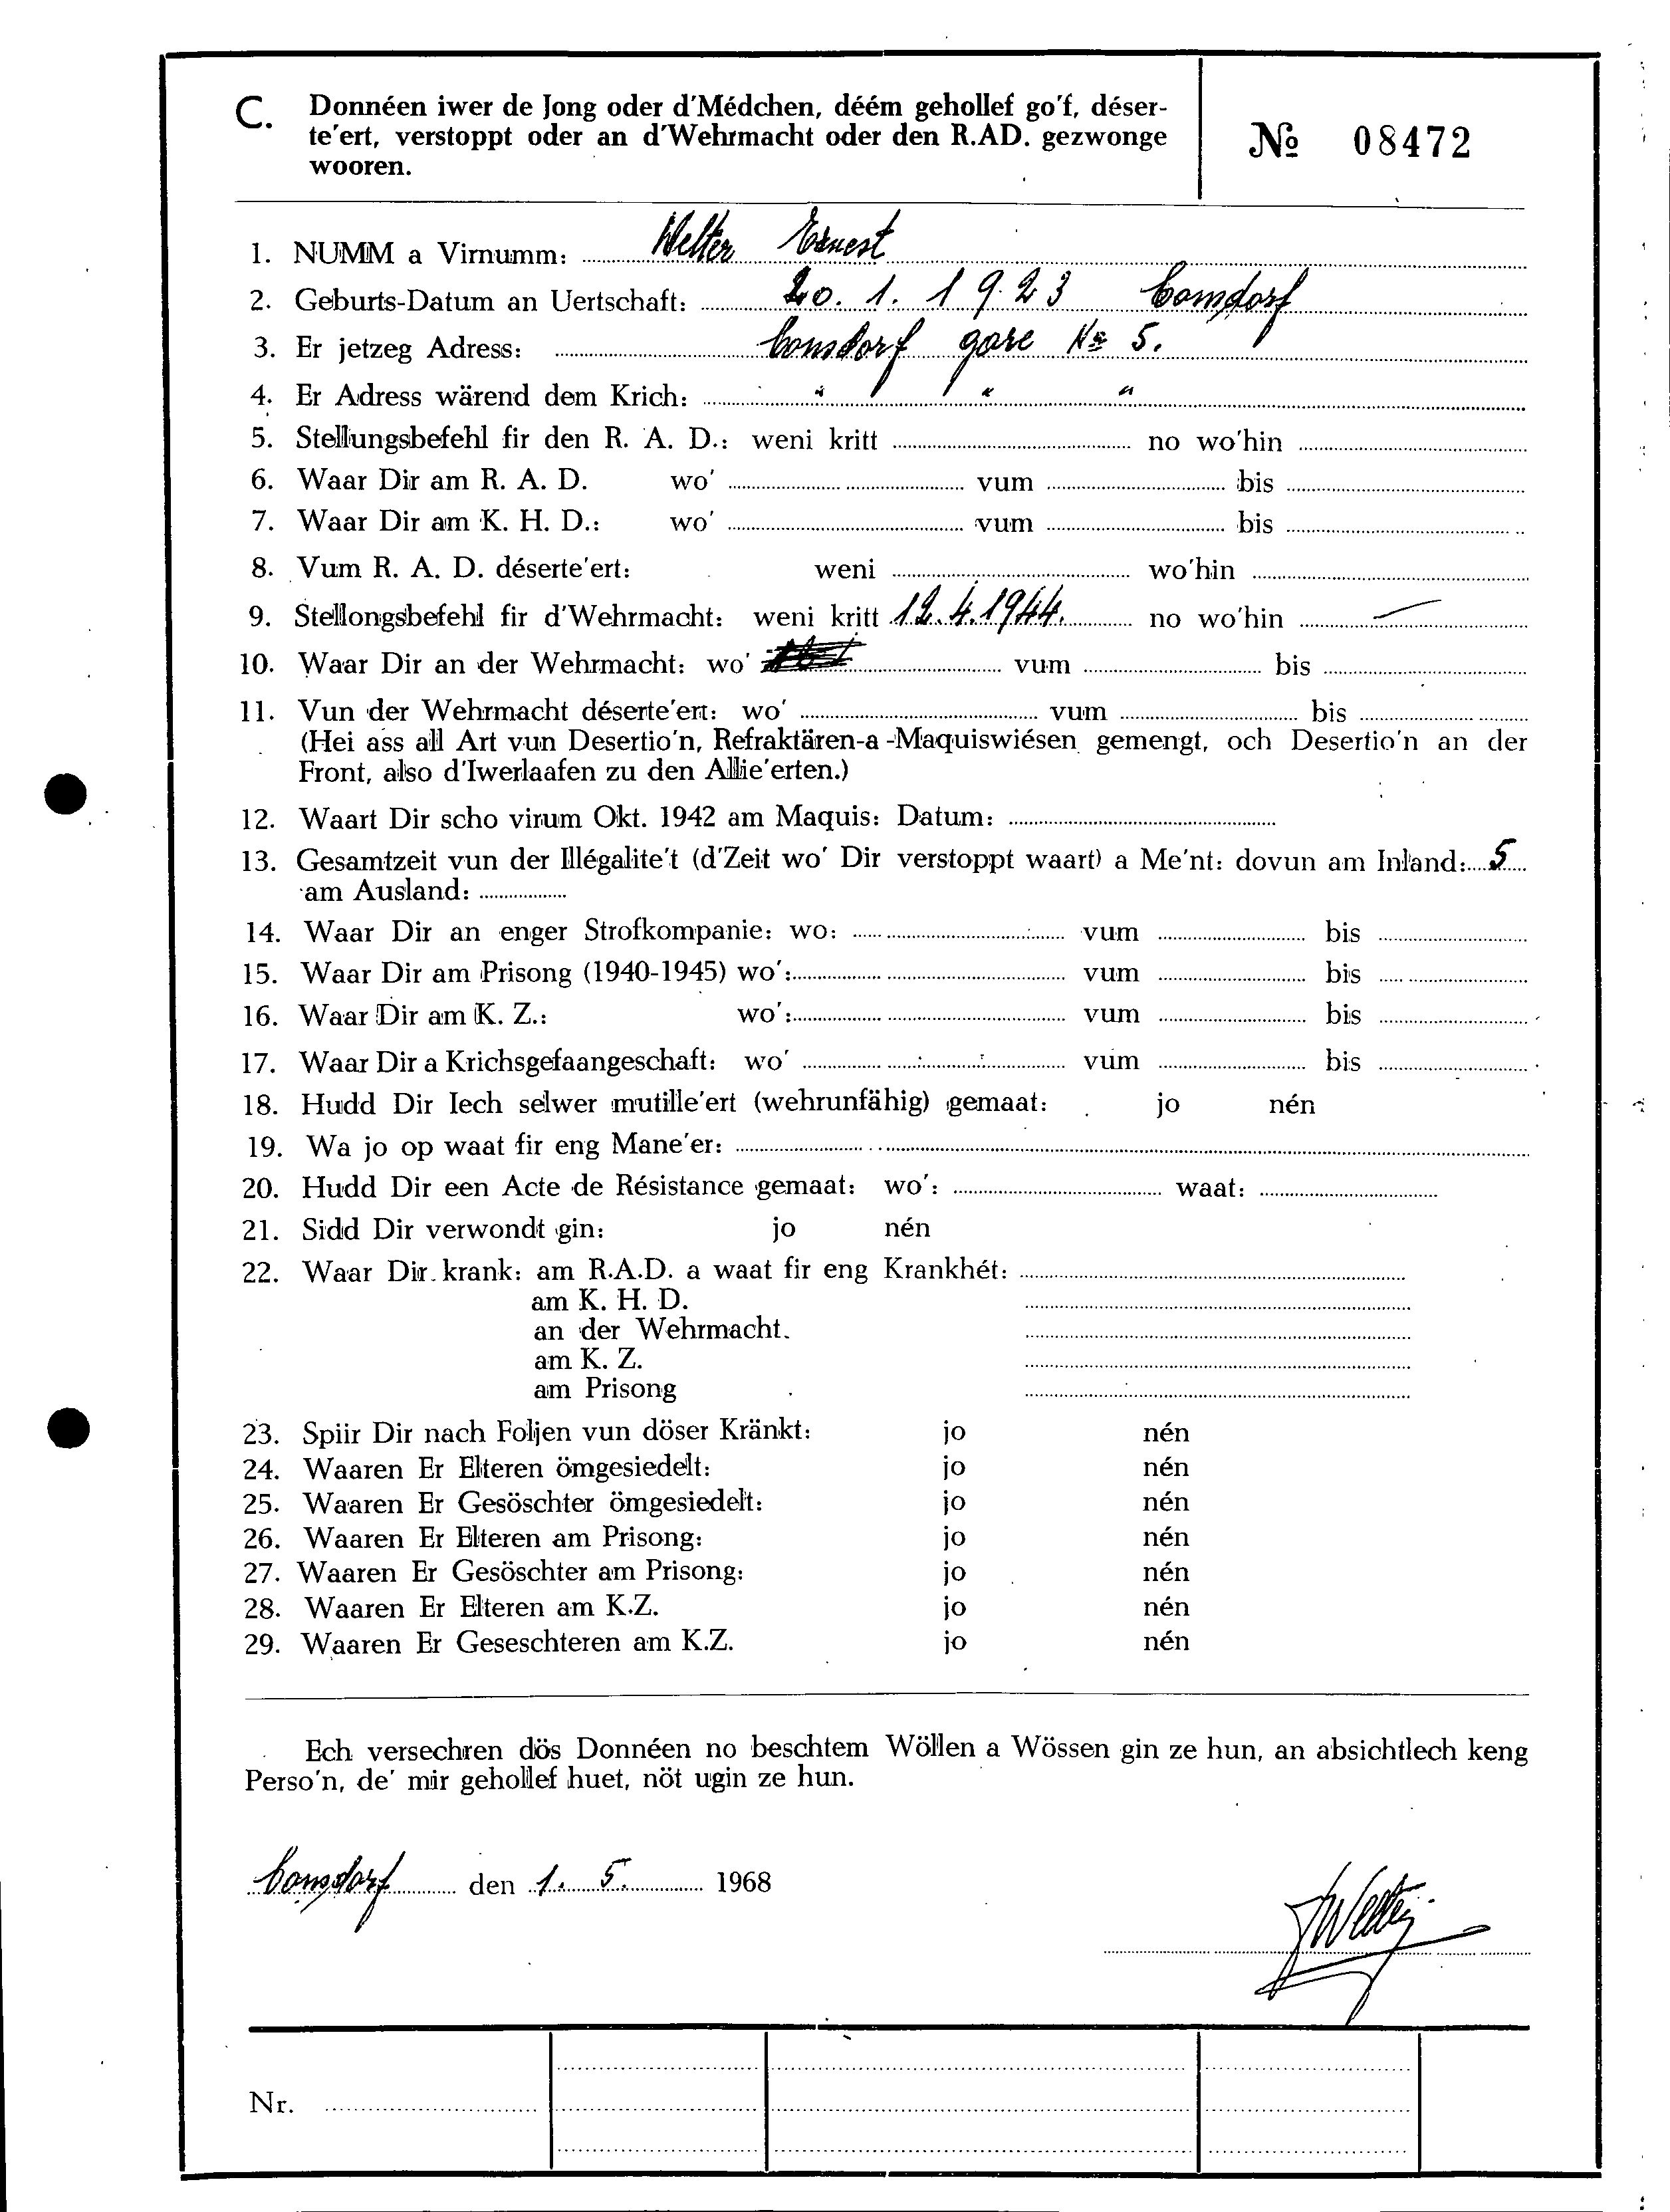 C. Donnéen iwer de Jong oder d'Médchen, déém gehollef go'f, déser-
te'ert, verstoppt oder an d'Wehrmacht oder den R.AD. gezwonge
wooren.
№ 08472
1. NUMM a Virnumm: Welter Ernest
2. Geburts-Datum an Uertschaft: 20. 1. 1923 Consdorf
3. Er jetzeg Adress: Consdorf gare № 5.
4. Er Adress wärend dem Krich: " " "
5. Stellungsbefehl fir den R. A. D.: weni kritt no wo'hin
6. Waar Dir am R. A. D. wo' vum bis
7. Waar Dir am K. H. D.: wo' vum bis
8. Vum R. A. D. déserte'ert: weni wo'hin
9. Stellongsbefehl fir d'Wehrmacht: weni kritt 12.4.1944. no wo'hin —
10. Waar Dir an der Wehrmacht: wo' vum bis
11. Vun der Wehrmacht déserte'ert: wo' vum bis
(Hei ass all Art vun Desertio'n, Refraktären-a-Maquiswiésen gemengt, och Desertio'n an der
Front, also d'Iwerlaafen zu den Allie'erten.)
12. Waart Dir scho virum Okt. 1942 am Maquis: Datum:
13. Gesamtzeit vun der Illégalite't (d'Zeit wo' Dir verstoppt waart) a Me'nt: dovun am Inland: 5
am Ausland:
14. Waar Dir an enger Strofkompanie: wo: vum bis
15. Waar Dir am Prisong (1940-1945) wo': vum bis
16. Waar Dir am K. Z.: wo': vum bis
17. Waar Dir a Krichsgefaangeschaft: wo' vum bis
18. Hudd Dir Iech selwer mutille'ert (wehrunfähig) gemaat: jo nén
19. Wa jo op waat fir eng Mane'er:
20. Hudd Dir een Acte de Résistance gemaat: wo': waat:
21. Sidd Dir verwondt gin: jo nén
22. Waar Dir krank: am R.A.D. a waat fir eng Krankhét:
am K. H. D.
an der Wehrmacht.
am K. Z.
am Prisong
23. Spiir Dir nach Foljen vun döser Kränkt: jo nén
24. Waaren Er Elteren ömgesiedelt: jo nén
25. Waaren Er Gesöschter ömgesiedelt: jo nén
26. Waaren Er Elteren am Prisong: jo nén
27. Waaren Er Gesöschter am Prisong: jo nén
28. Waaren Er Elteren am K.Z. jo nén
29. Waaren Er Geseschteren am K.Z. jo nén
Ech versechren dös Donnéen no beschtem Wöllen a Wössen gin ze hun, an absichtlech keng
Perso'n, de' mir gehollef huet, nöt ugin ze hun.
Consdorf den 1. 5. 1968
Welter
Nr.